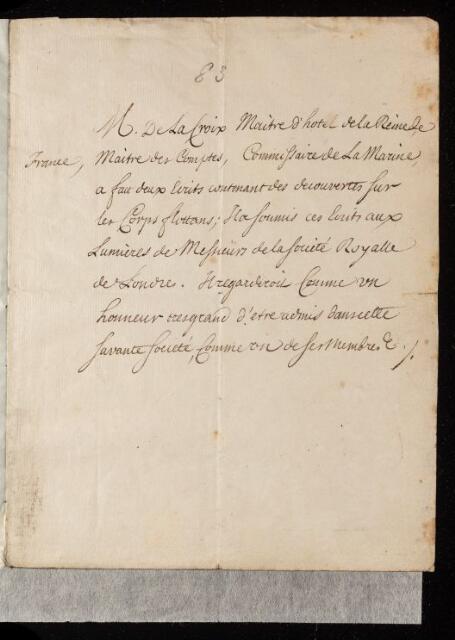 83
M. De La Croix Maitre d'hotel de la Reine de
France, Maitre des Comptes, Commissaire de La Marine,
a fait deux écrits contenant des decouvertes sur
les Corps flottans; Il a soumis ces écrits aux
Lumières de Messieurs de la Société Royalle
de Londres. Il regarderoit Comme un
honneur tres grand d'etre admis dans cette
savante société, Comme un de ses Membres